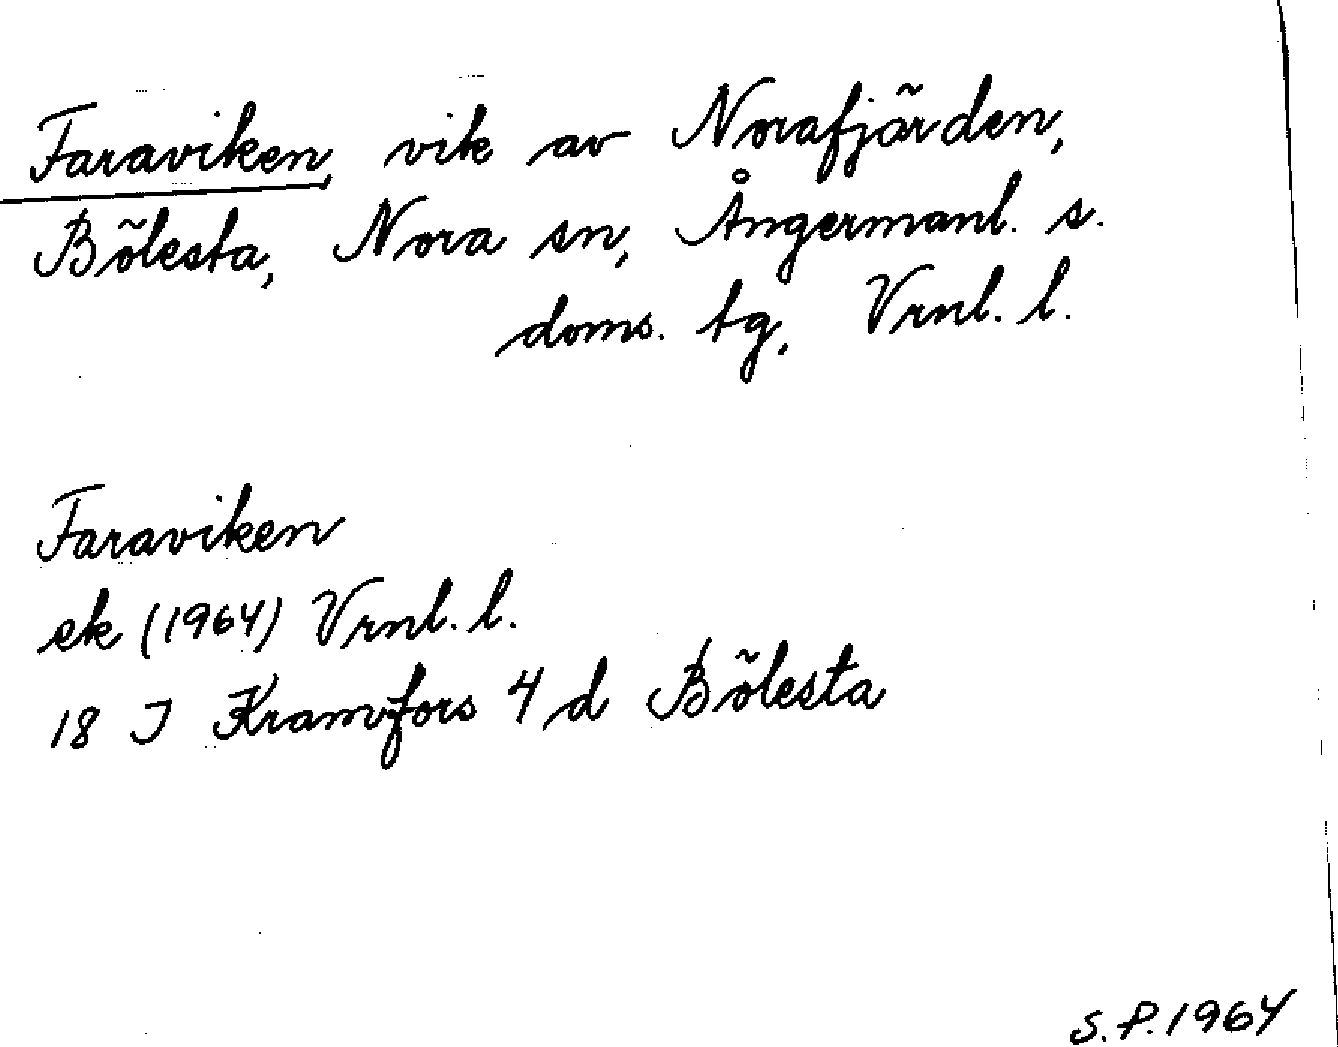 Faraviken, vik av Norafjärden,
Bölesta, Nora sn, Ångermanl. s.
doms. tg, Vrnl. l.
Faraviken
ek (1964) Vrnl. l.
18 J Kramfors 4 d Bölesta
S.P. 1964